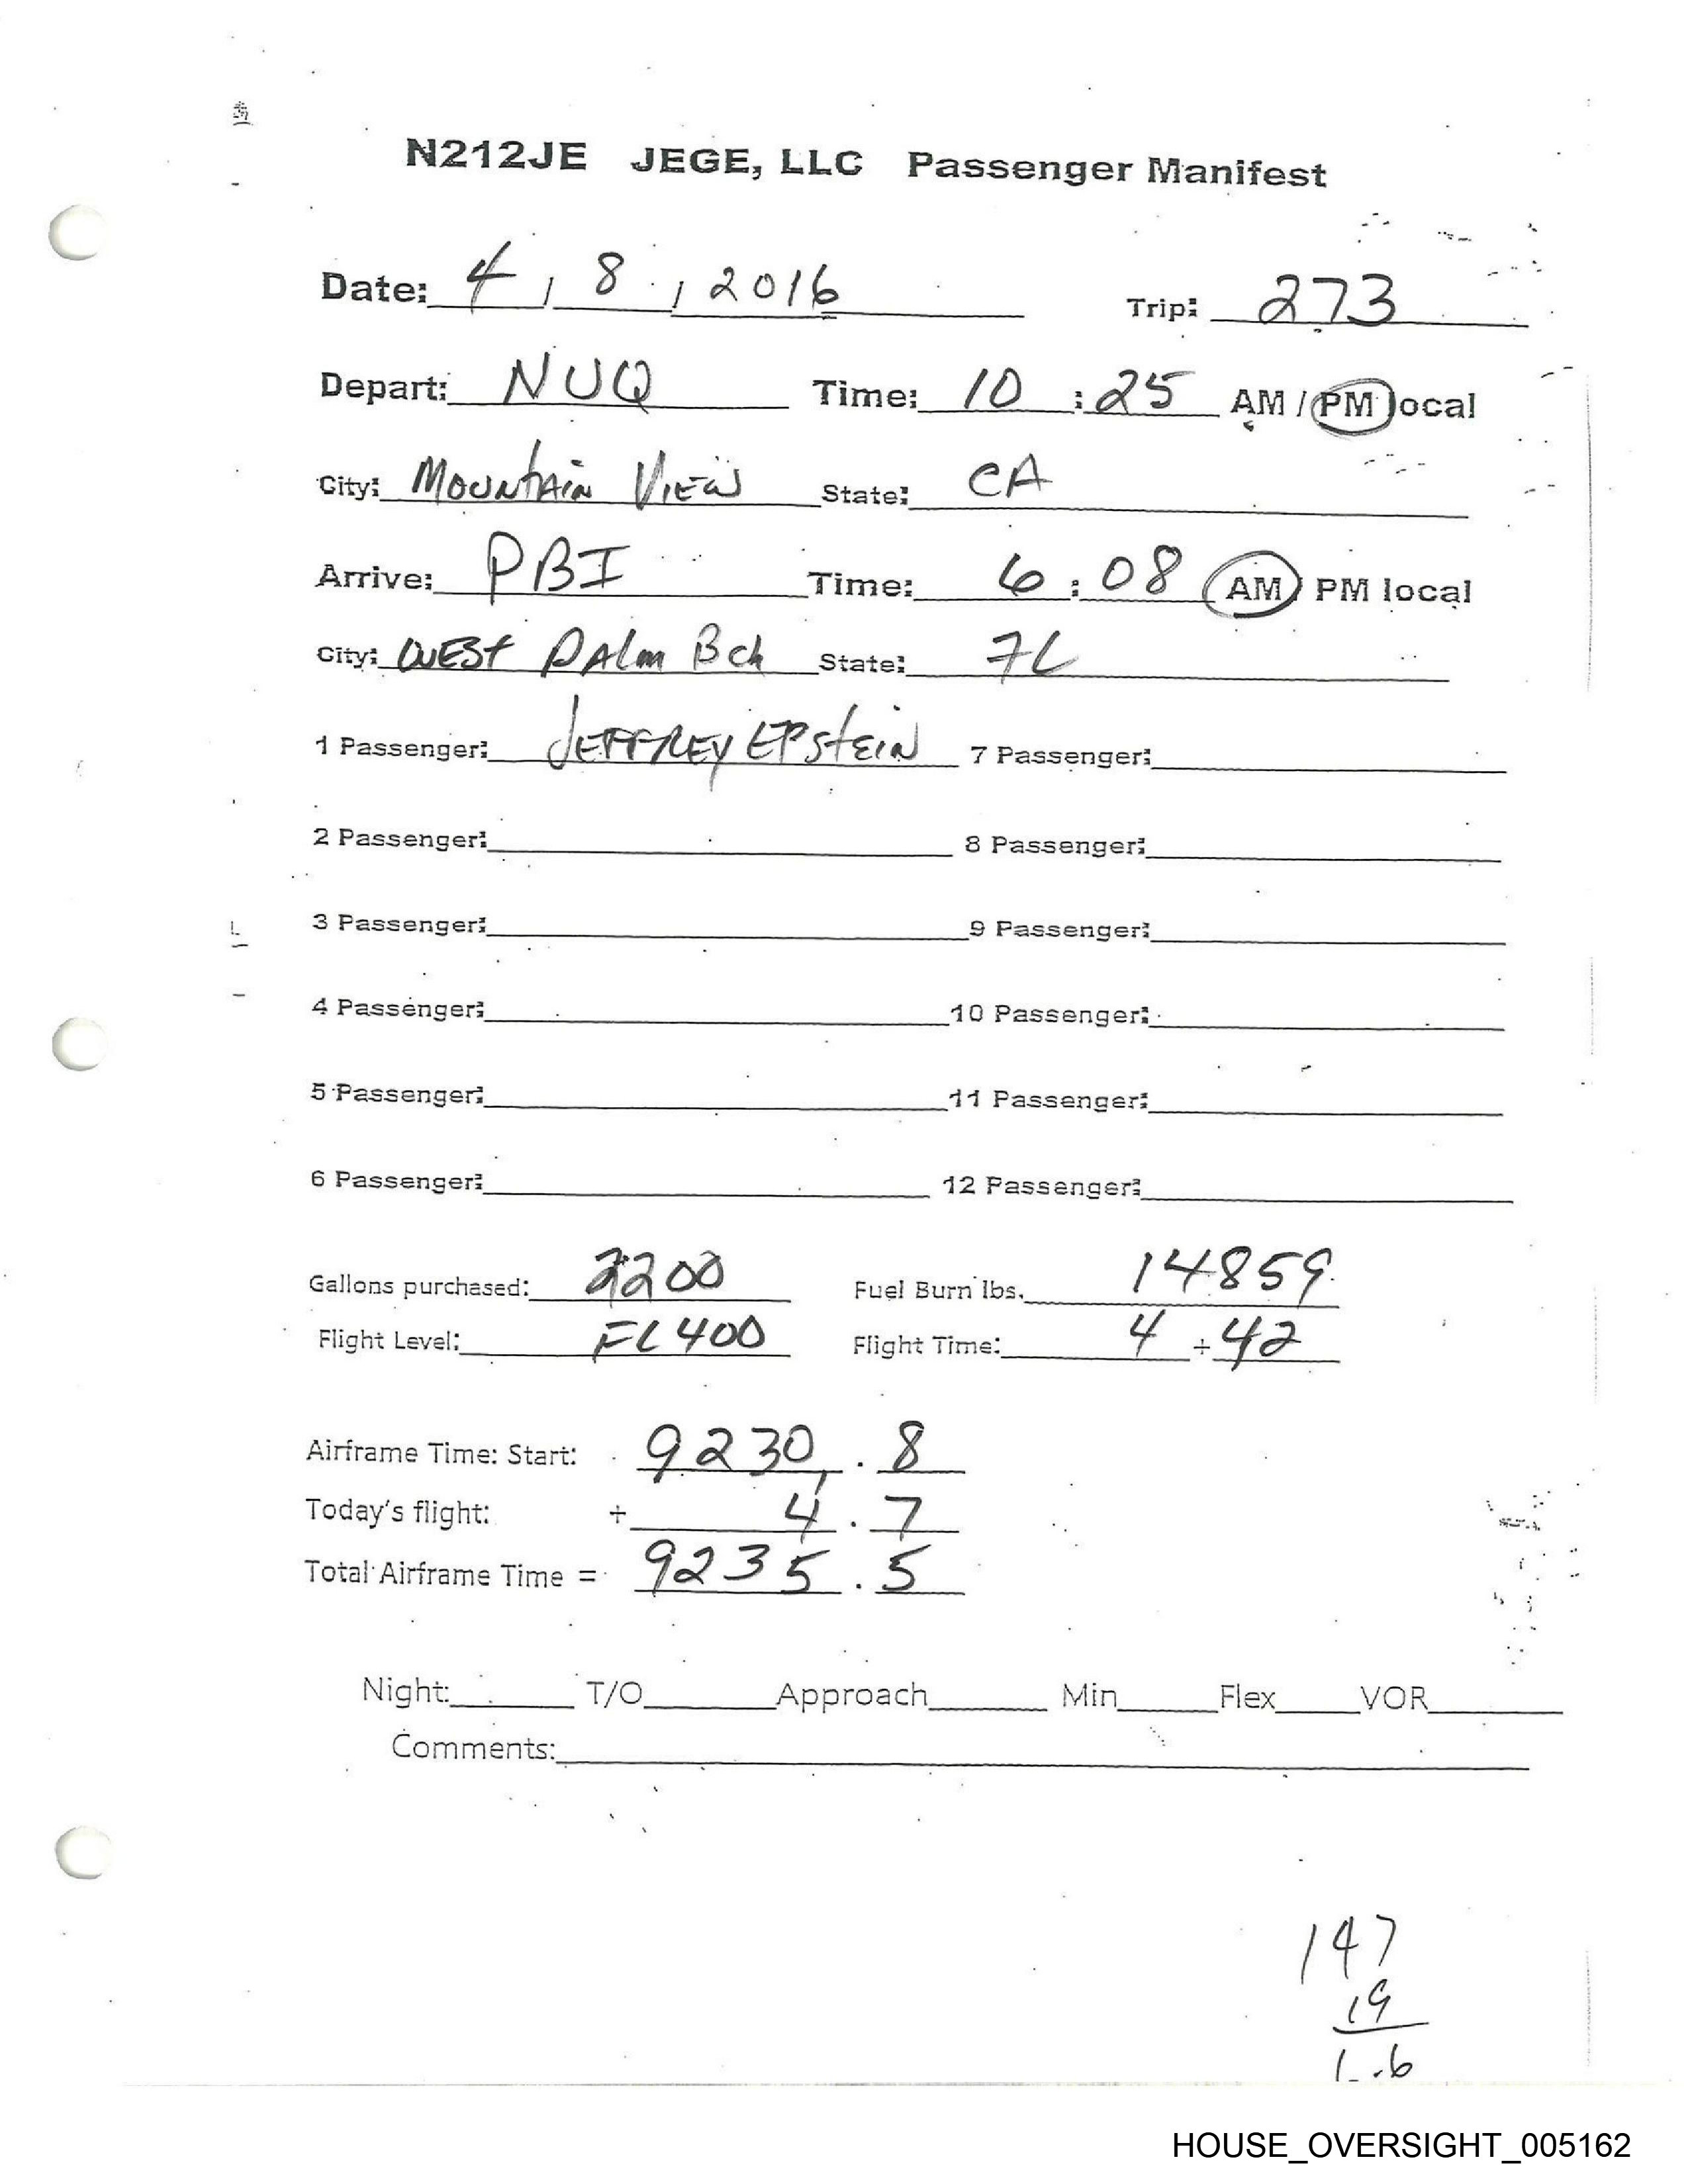 N212JE JEGE, LLC Passenger Manifest
Date: 4 / 8 / 2016 Trip: 273
Depart: NUQ Time: 10 : 25 AM / PM local
City: Mountain View State: CA
Arrive: PBI Time: 6 : 08 AM / PM local
City: West Palm Bch State: FL
1 Passenger: Jeffrey Epstein 7 Passenger:
2 Passenger: 8 Passenger:
3 Passenger: 9 Passenger:
4 Passenger: 10 Passenger:
5 Passenger: 11 Passenger:
6 Passenger: 12 Passenger:
Gallons purchased: 2200 Fuel Burn lbs. 14859
Flight Level: FL400 Flight Time: 4 + 42
Airframe Time: Start: 9230 . 8
Today's flight: + 4 . 7
Total Airframe Time = 9235 . 5
Night: T/O Approach Min Flex VOR
Comments:
147
19
HOUSE_OVERSIGHT_005162